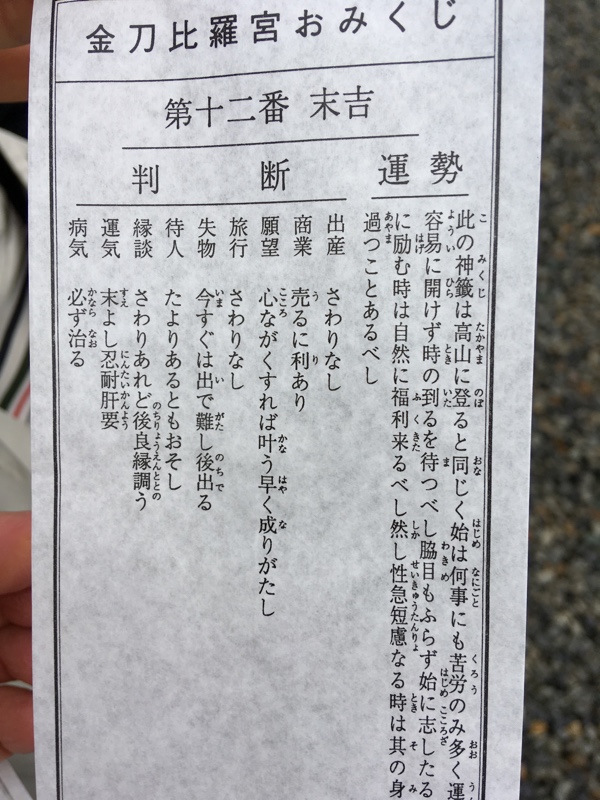 金刀比羅宮おみくじ
第十二番 末吉
運勢
此の神籤は高山に登ると同じく始は何事にも苦労のみ多く運
容易に開けず時の到るを待つべし脇目もふらず始に志したる
に励む時は自然に福利来るべし然し性急短慮なる時は其の身
過つことあるべし
判断
出産 さわりなし
商業 売るに利あり
願望 心ながくすれば叶う早く成りがたし
旅行 さわりなし
失物 今すぐは出で難し後出る
待人 たよりあるともおそし
縁談 さわりあれど後良縁調う
運気 末よし忍耐肝要
病気 必ず治る